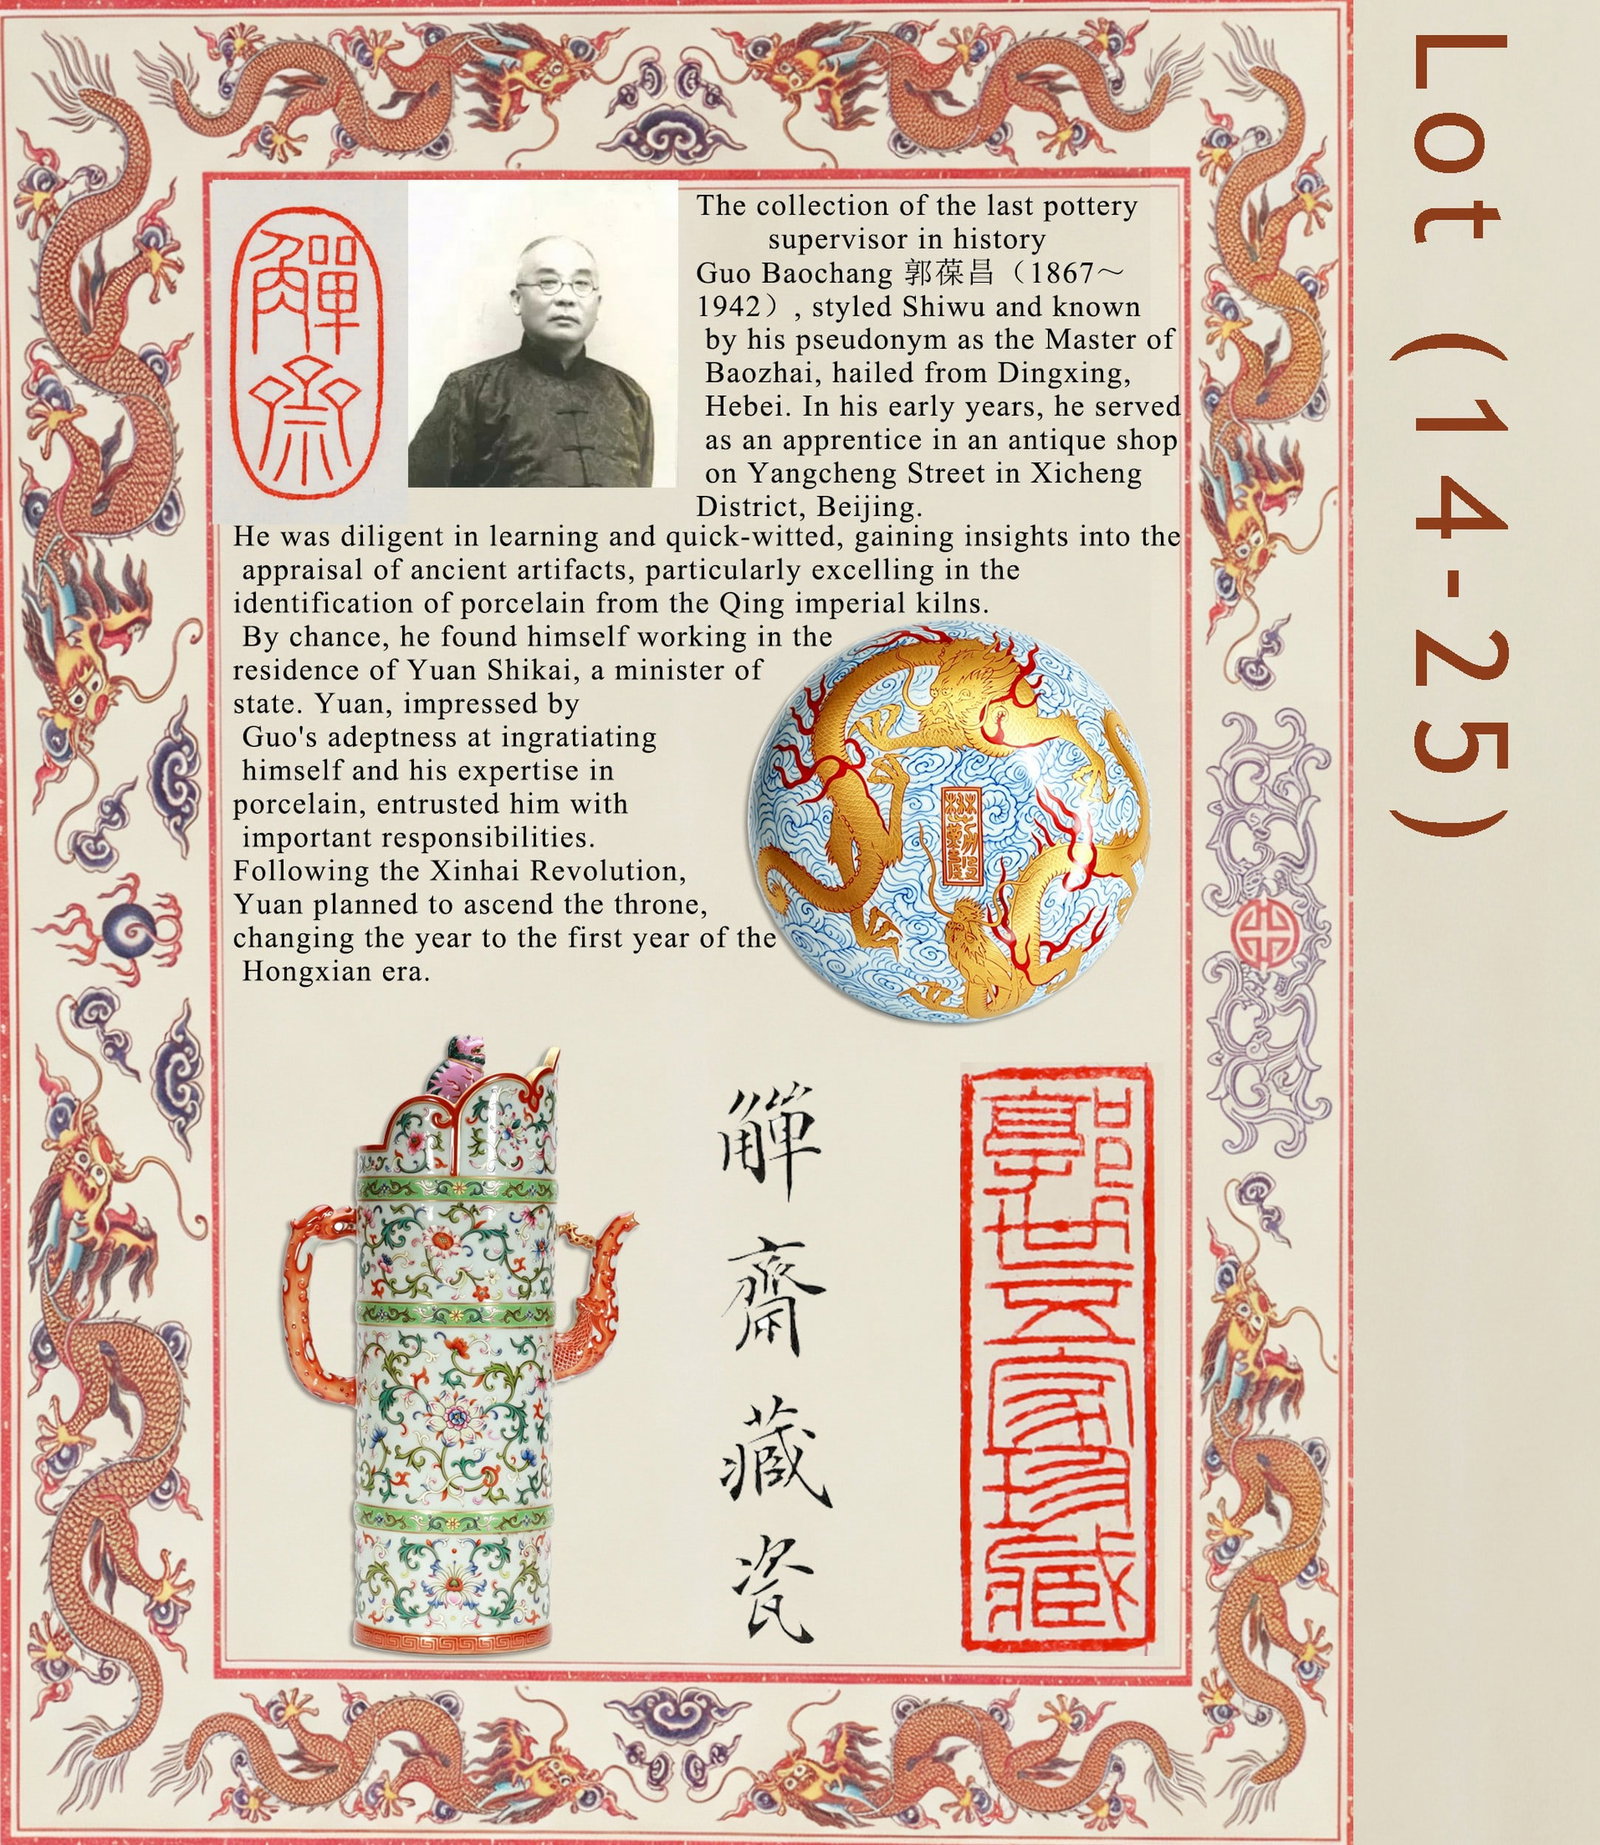 觶
齋
The collection of the last pottery
supervisor in history
Guo Baochang 郭葆昌（1867～
1942）, styled Shiwu and known
by his pseudonym as the Master of
Baozhai, hailed from Dingxing,
Hebei. In his early years, he served
as an apprentice in an antique shop
on Yangcheng Street in Xicheng
District, Beijing.
He was diligent in learning and quick-witted, gaining insights into the
appraisal of ancient artifacts, particularly excelling in the
identification of porcelain from the Qing imperial kilns.
By chance, he found himself working in the
residence of Yuan Shikai, a minister of
state. Yuan, impressed by
Guo's adeptness at ingratiating
himself and his expertise in
porcelain, entrusted him with
important responsibilities.
Following the Xinhai Revolution,
Yuan planned to ascend the throne,
changing the year to the first year of the
Hongxian era.
觶齋藏瓷
郭世五家珍藏
Lot (14-25)